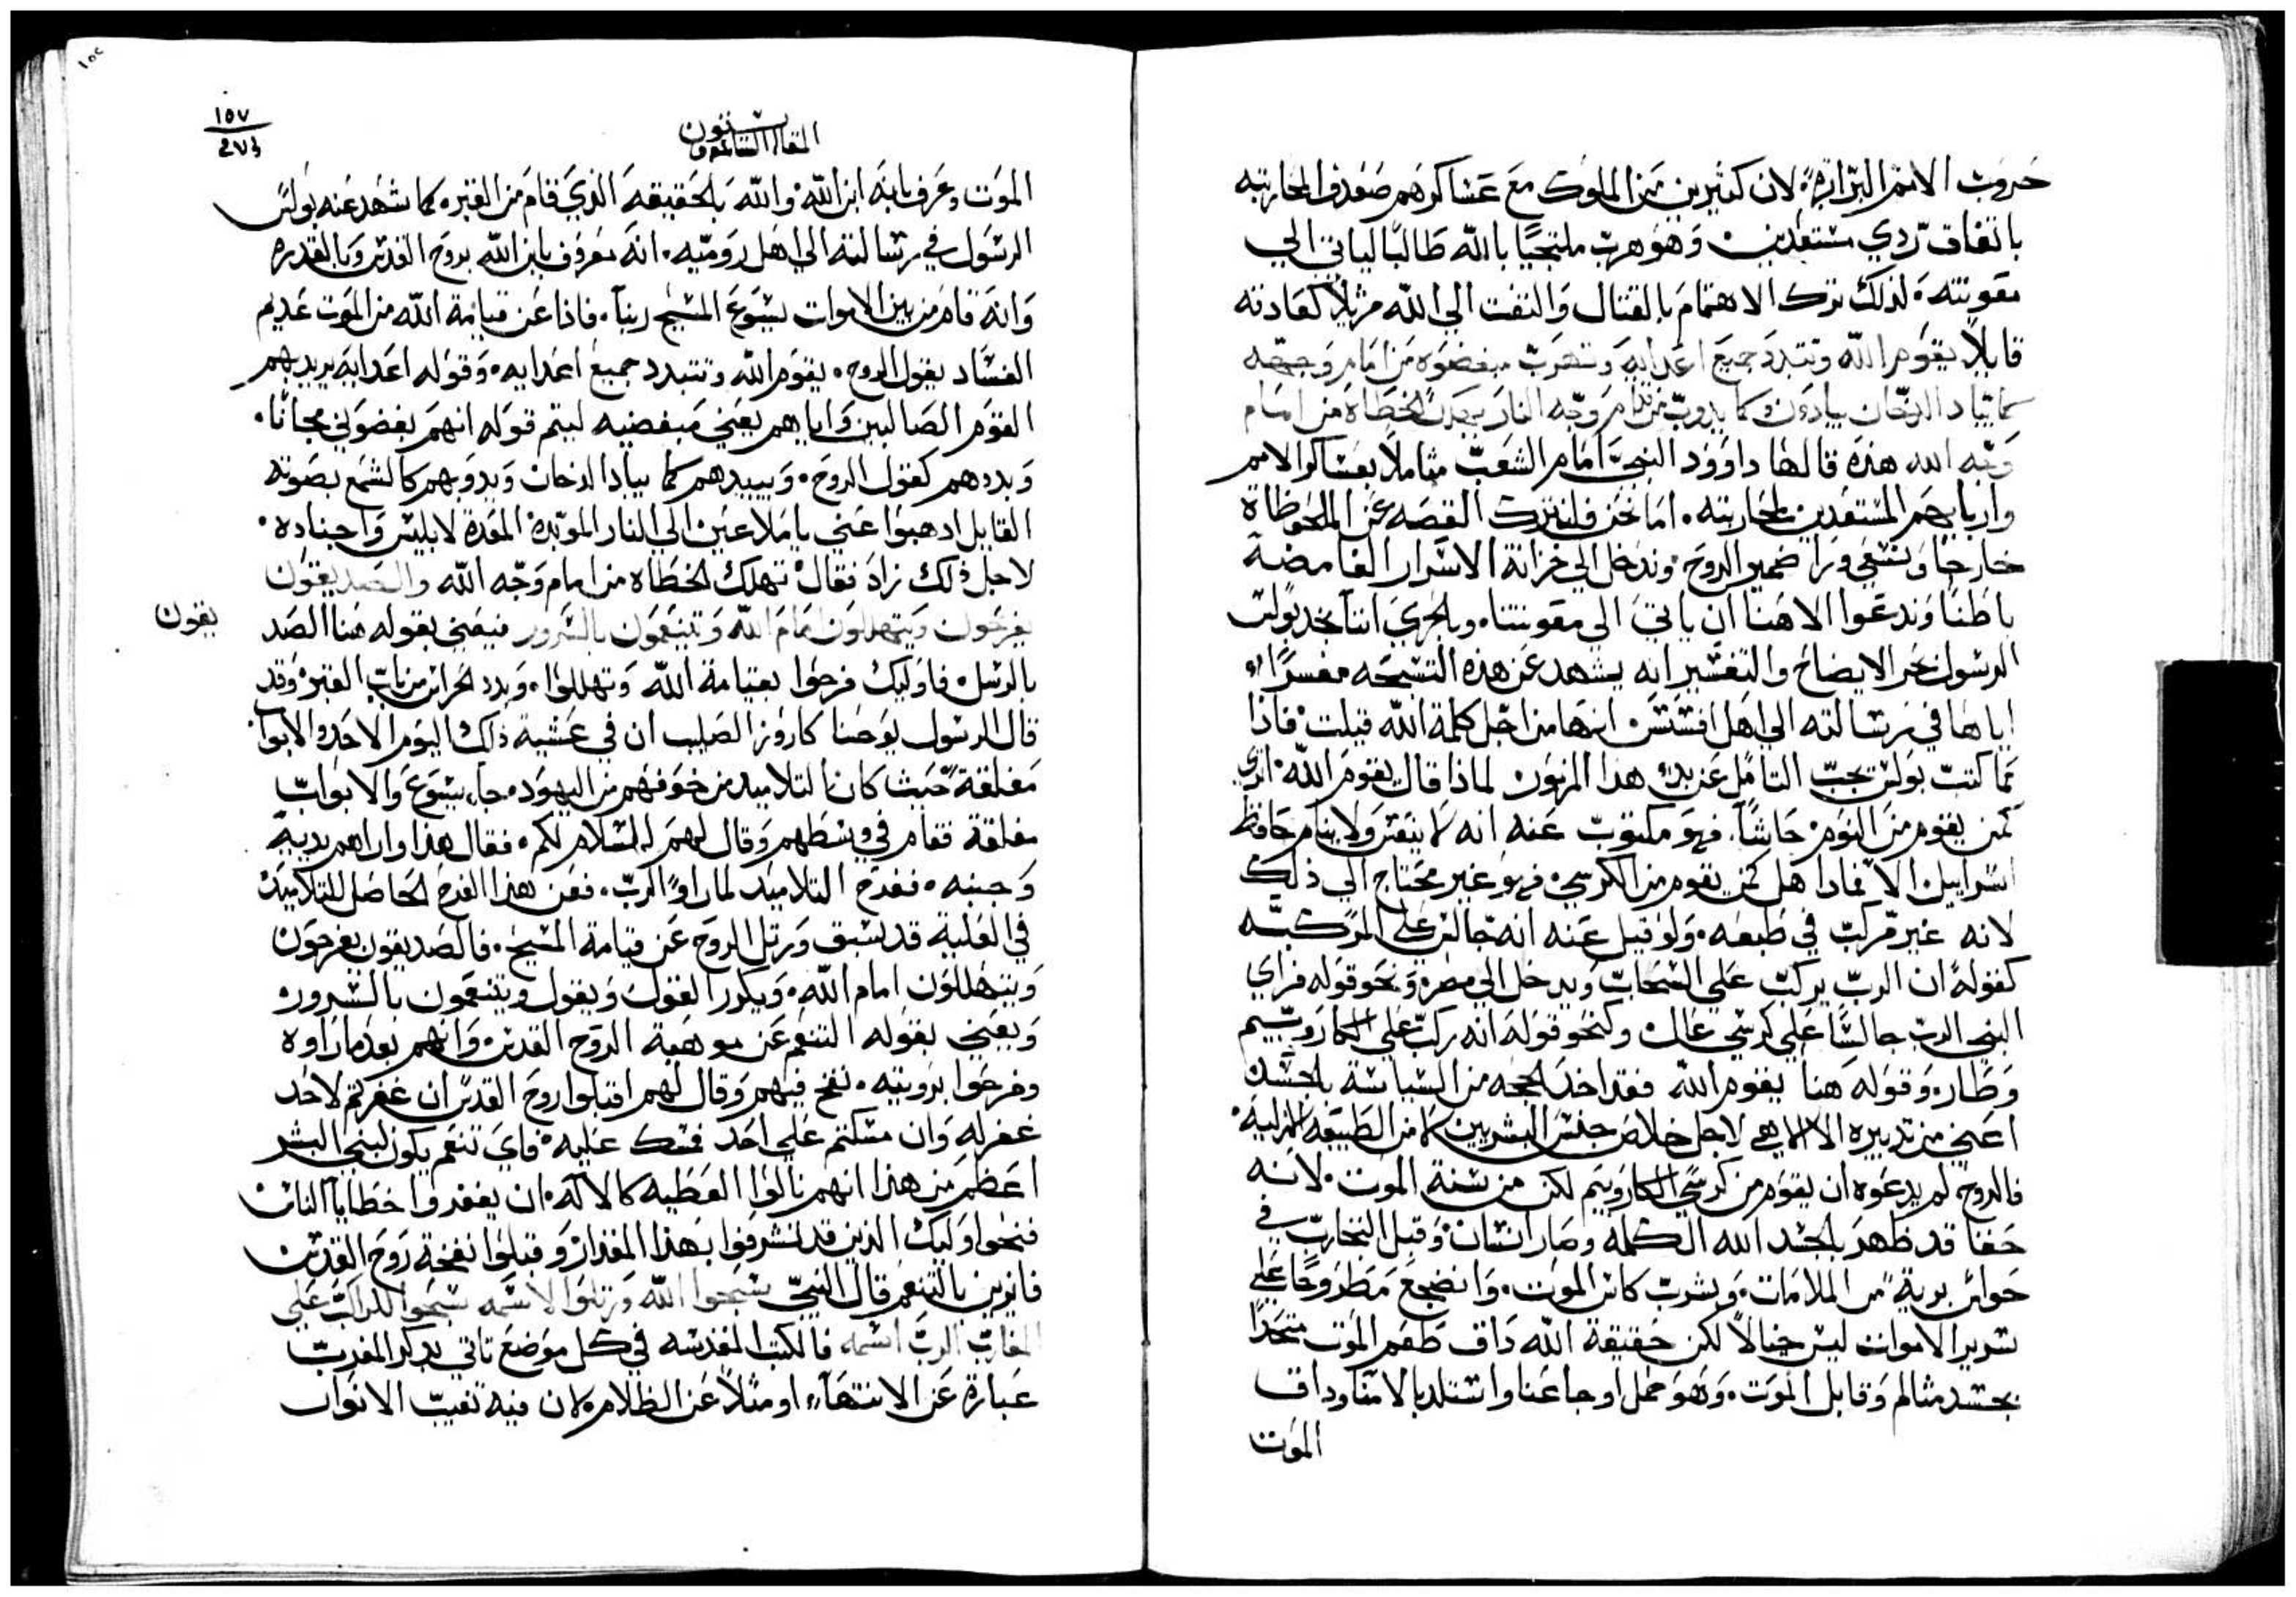 حروب الامم البرّانية لان كثيرين من الملوك مع عساكرهم صعدوا لمحاربته
باتفاق ردي مستعدين وهو هرب ملتجيًا بالله طالبًا لياتي الي
معونته. لذلك ترك الاهتمام بالقتال والتفت الي الله مرتلاً كعادته
قايلاً يقوم الله وتتبدد جميع اعدايه وتهرب مبغضوه من امام وجهه
كما يباد الدخان يبادون كما يدوب من قدام وجه النار يهلك الخطاة من امام
وجه الله هذه قالها داوود النبي امام الشعب متاملاً بعساكر الامم
واربابهم المستعدين لمحاربته. اما نحن فلنترك القصه عن الملحوظات
خارجًا ونسعي ورا ضمير الروح. وندخل الي خزانة الاسرار الغامضة
باطنًا وندعوا الاهنا ان ياتي الي معونتنا. وبالحري اننا نجد بولس
الرسول بحر الايضاح والتفسير انه يشهد عن هذه التسبحه مفسرًا
اياها في رسالته الي اهل افسس انها من اجل كلمة الله قيلت. فاذا
مما كتب بولس يجب التامل عن بدء هذا المزمور لماذا قال يقوم الله. اتري
كمن يقوم من النوم حاشا. فهو مكتوب عنه انه لا ينعس ولا ينام حافظ
اسراييل الا فماذا هل كمن يقوم من الكرسي. فهو غير محتاج الي ذلك
لانه غير مركب في طبعه. ولو قيل عنه انه جالس علي المركبه
كقوله ان الرب يركب علي السحاب ويدخل الي مصر. ونحو قوله فراي
النبي الرب جالسًا علي كرسي عال. وكنحو قوله انه ركب علي الكاروبيم
وطار. وقوله هنا يقوم الله فقد اخذ الحجه من السياسة بالجسد
اعني من تدبيره الالاهي لاجل خلاص جنس البشريين لا من الطبيعه الازلية.
فالروح لم يدعوه ان يقوم من كرسي الكاروبيم لكن من سنة الموت. لانه
حقًا قد ظهر بالجسد الله الكلمة وصار انسان. وقبل التجارب في
حواس برية من الملامات. ويشرب كاس الموت. وانضجع مطروحًا علي
سرير الاموات ليس خيالاً لكن حقيقة الله داق طعم الموت متحدًا
بجسد متالم وقابل الموت. وهو حمل اوجاعنا واستلد بالامنا وداق
الموت
١٥٧
٢٧٣
المقالة الستون
الموت وعرف بانه ابن الله والله بالحقيقه الذي قام من القبر. كما شهد عنه بولس
الرسول في رسالته الي اهل روميه. انه معروف بابن الله بروح القدس وبالقدره
وانه قام من بين الاموات يسوع المسيح ربنا. فاذا عن قيامة الله من الموت عديم
الفساد يقول الروح. يقوم الله وتتبدد جميع اعدايه. وقوله اعدايه يريد بهم
القوم الصالبين واياهم يعني مبغضيه ليتم قوله انهم بغضوني مجانًا.
وبددهم كقول الروح. ويبيدهم كما يباد الدخان ويدوبهم كالشمع بصوته
القايل ادهبوا عني يا ملاعين الي النار الموبدة المعدة لابليس واجناده.
لاجل ذلك زاد فقال تهلك الخطاه من امام وجه الله والصديقون
يفرحون ويتهللون امام الله ويتنعمون بالسرور فيعني بقوله هنا الصد
يقون
بالرسل. فاوليك فرحوا بقيامة الله وتهللوا. وبدد الحراس من باب القبر. وقد
قال الرسول يوحنا كاروز الصليب ان في عشية ذلك اليوم الاحد والابوا
مغلقة حيث كان التلاميد من خوفهم من اليهود. جاء يسوع والابواب
مغلقة فقام في وسطهم وقال لهم السلام لكم. فقال هذا واراهم يديه
وجنبه. ففرح التلاميد لما راو الرب. فعن هذا الفرح الحاصل للتلاميد
في العلية قد سبق ورتل الروح عن قيامة المسيح. فالصديقون يفرحون
ويتهللون امام الله. ويكرر القول ويقول ويتنعمون بالسرور.
ويعني بقوله التنعم عن موهبة الروح القدس. وانهم بعد ما راوه
وفرحوا برويته. نفخ فيهم وقال لهم اقبلوا روح القدس ان غفرتم لاحد
غفر له وان مسكتم علي احد مسك عليه. فاي تنعم يكون لبني البشر
اعظم من هذا انهم نالوا العطيه كالالة. ان يغفروا خطايا الناس
اوليك الذين قد تشرفوا بهذا المقدار وقبلوا نفخة روح القدس
بالتنعم قال النبي سبحوا الله ورتلوا لاسمه سبحوا للراكب علي
المغارب الرب اسمه فالكتب المقدسه في كل موضع تاتي بدكر المغرب
عبارة عن الانتهاء او مثلاً عن الظلام لان فيه تغيب الانوار